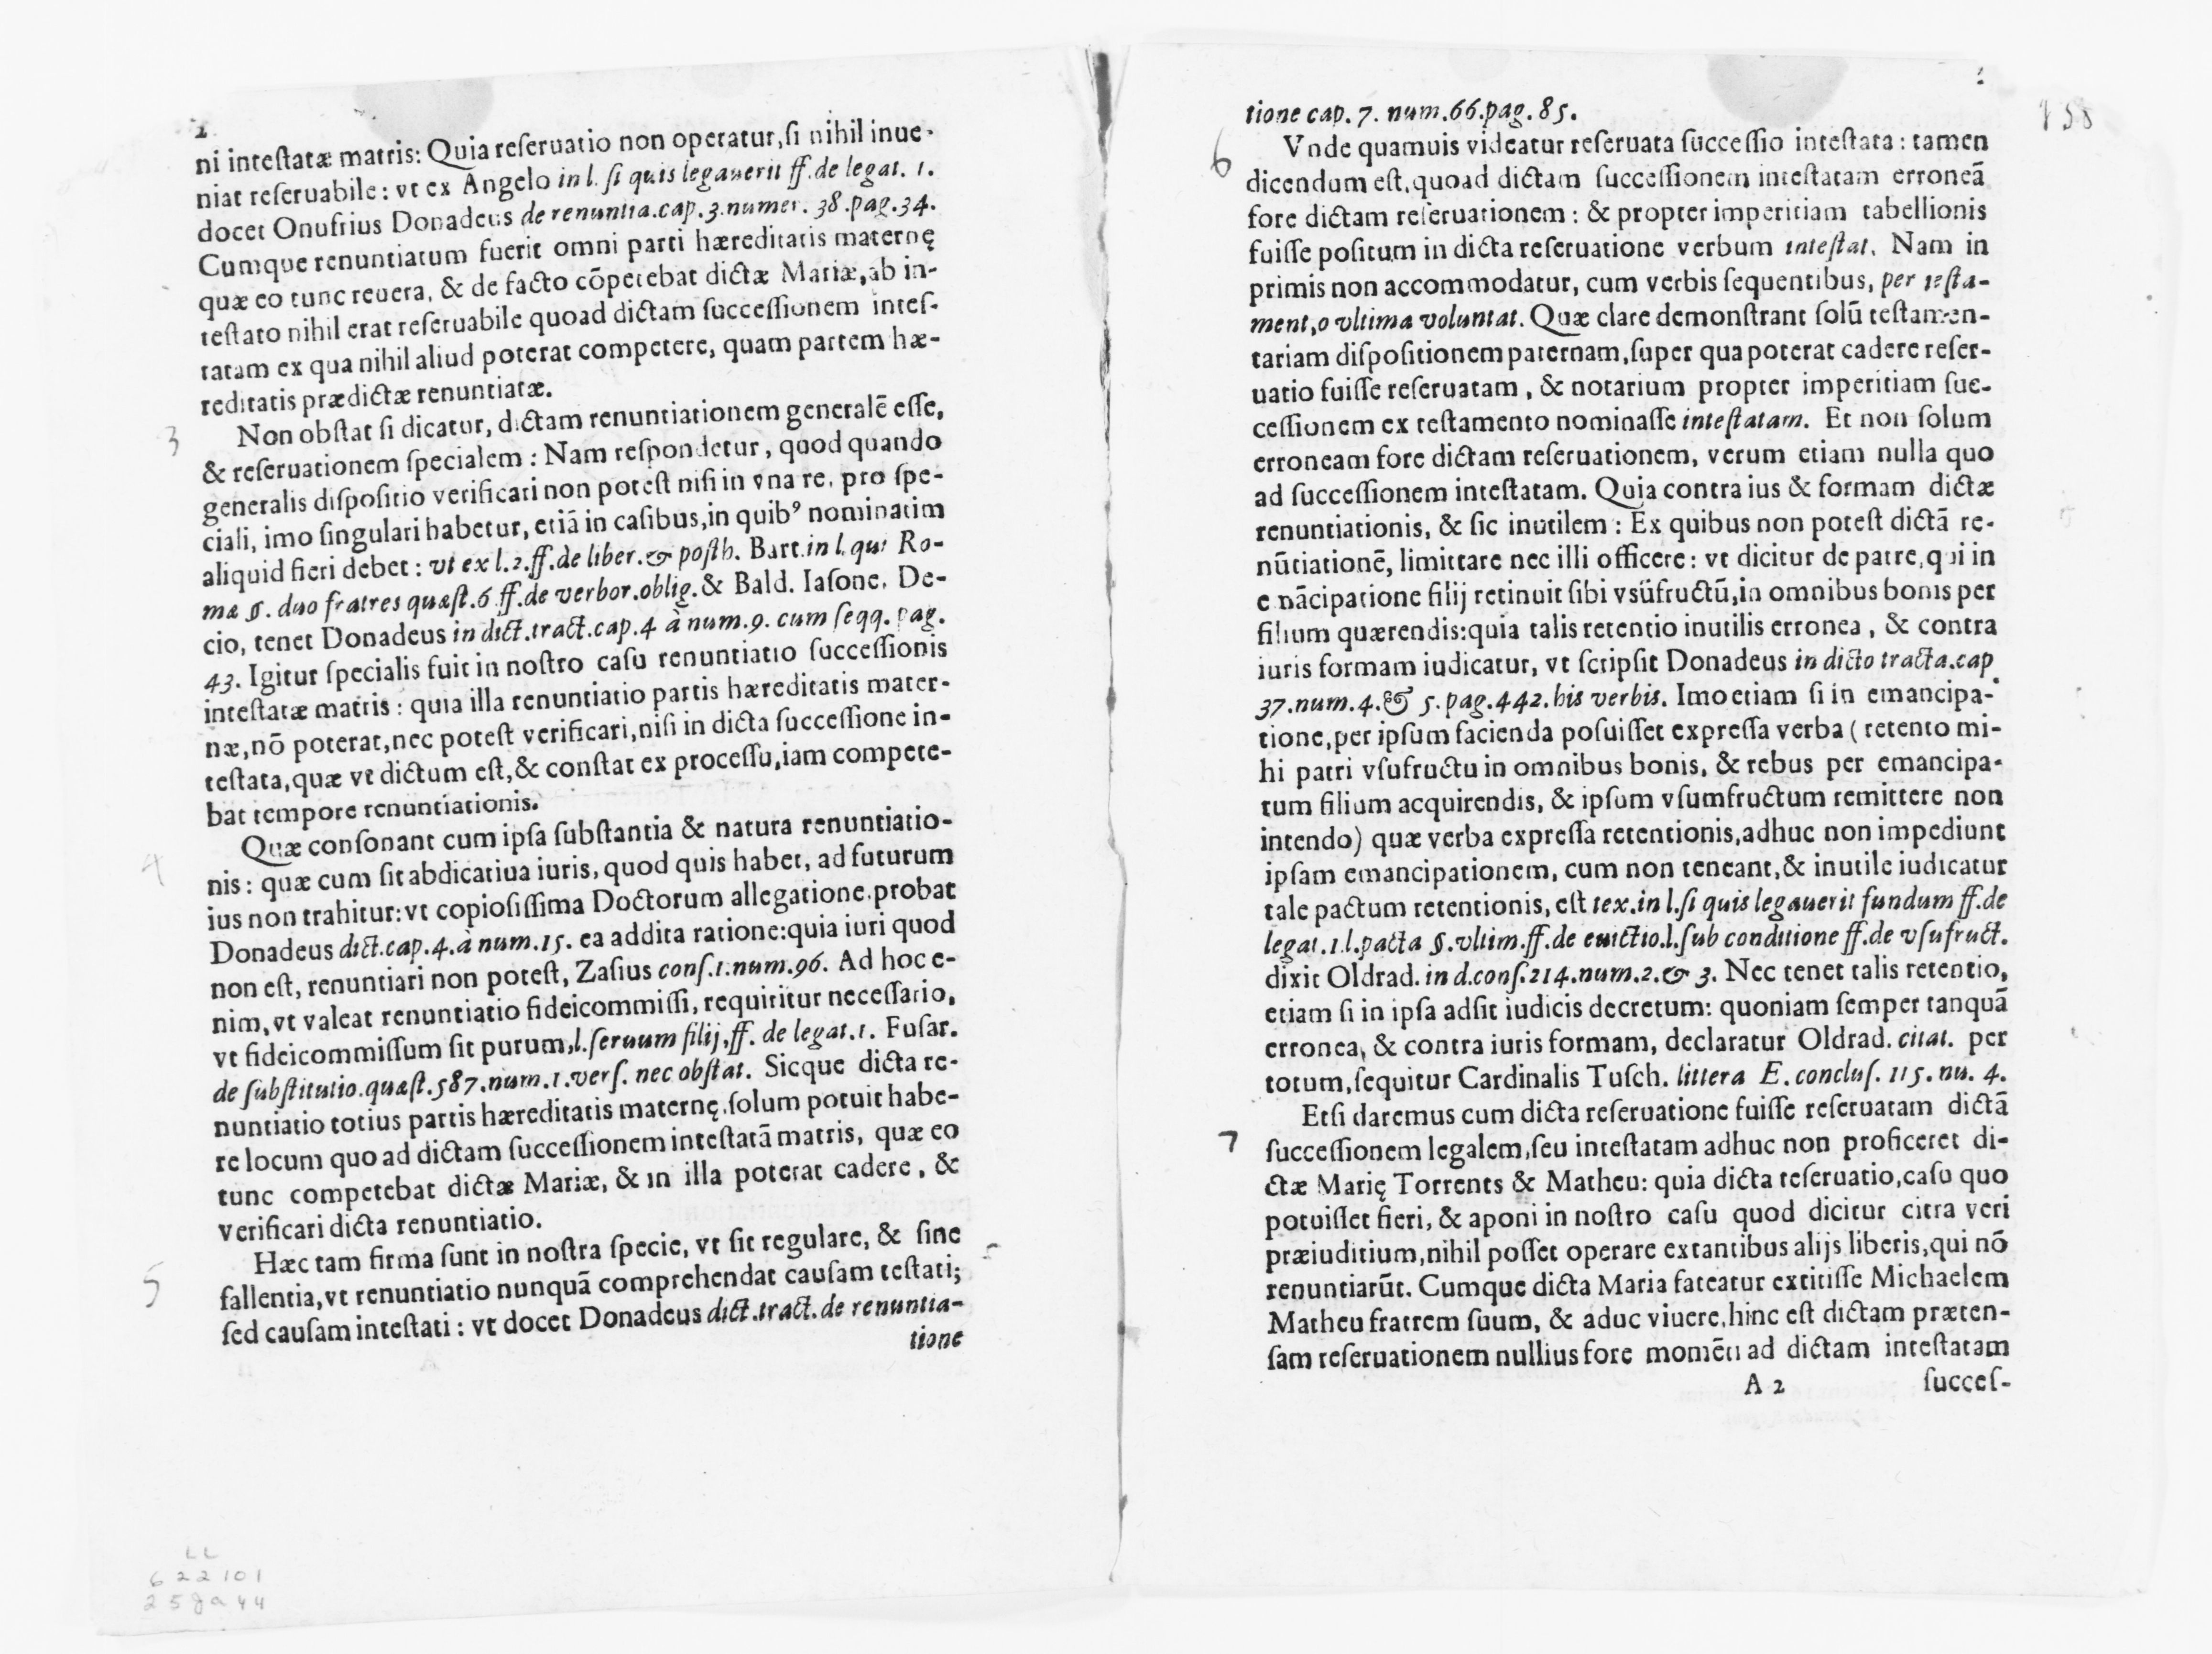 2
ni intestatæ matris: Quia reſeruatio non operatur, ſi nihil inue-
niat reſeruabile: vt ex Angelo in l. ſi quis legauerit ff. de legat. 1.
docet Onufrius Donadeus de renuntia.cap.3.numer. 38.pag.34.
Cumque renuntiatum fuerit omni parti hæreditatis maternę
quæ eo tunc reuera, & de facto cõpetebat dictæ Mariæ, ab in-
testato nihil erat reſeruabile quoad dictam ſucceſſionem inteſ-
tatam ex qua nihil aliud poterat competere, quam partem hæ-
reditatis prædictæ renuntiatæ.
3
Non obſtat ſi dicatur, dictam renuntiationem generalẽ eſſe,
& reſeruationem ſpecialem: Nam reſpondetur, quod quando
generalis diſpoſitio verificari non poteſt niſi in vna re, pro ſpe-
ciali, imo ſingulari habetur, etiã in caſibus, in quibꝰ nominatim
aliquid fieri debet: vt ex l.2.ff.de liber.& poſth. Bart.in l.qui Ro-
mæ §. duo fratres quæſt.6 ff.de verbor.oblig.& Bald. Iaſone, De-
cio, tenet Donadeus in dict.tract.cap.4 à num.9. cum ſeqq. pag.
43. Igitur ſpecialis fuit in noſtro caſu renuntiatio ſucceſſionis
inteſtatæ matris: quia illa renuntiatio partis hæreditatis mater-
næ, nõ poterat, nec poteſt verificari, niſi in dicta ſucceſſione in-
teſtata, quæ vt dictum eſt, & conſtat ex proceſſu, iam compete-
bat tempore renuntiationis.
4
Quæ conſonant cum ipſa ſubſtantia & natura renuntiatio-
nis: quæ cum ſit abdicatiua iuris, quod quis habet, ad futurum
ius non trahitur: vt copioſiſſima Doctorum allegatione, probat
Donadeus dict.cap.4.à num.15. ea addita ratione: quia iuri quod
non eſt, renuntiari non poteſt, Zaſius conſ.1.num.96. Ad hoc e-
nim, vt valeat renuntiatio fideicommiſſi, requiritur neceſſario,
vt fideicommiſſum ſit purum, l.ſeruum filij, ff. de legat.1. Fuſar.
de ſubſtitutio.quæſt.587.num.1.verſ. nec obſtat. Sicque dicta re-
nuntiatio totius partis hæreditatis maternę, ſolum potuit habe-
re locum quo ad dictam ſucceſſionem inteſtatã matris, quæ eo
tunc competebat dictæ Mariæ, & in illa poterat cadere, &
verificari dicta renuntiatio.
5
Hæc tam firma ſunt in noſtra ſpecie, vt ſit regulare, & ſine
fallentia, vt renuntiatio nunquã comprehendat cauſam teſtati;
ſed cauſam inteſtati: vt docet Donadeus dict.tract.de renuntia-
tione
LL
622101
258a44
tione cap. 7. num.66.pag.85.
6
Vnde quamuis videatur reſeruata ſucceſſio inteſtata: tamen
dicendum eſt, quoad dictam ſucceſſionem inteſtatam erroneã
fore dictam reſeruationem: & propter imperitiam tabellionis
fuiſſe poſitum in dicta reſeruatione verbum inteſtat. Nam in
primis non accommodatur, cum verbis ſequentibus, per teſta-
ment, o vltima voluntat. Quæ clare demonſtrant ſolũ teſtamen-
tariam diſpoſitionem paternam, ſuper qua poterat cadere reſer-
uatio fuiſſe reſeruatam, & notarium propter imperitiam ſuc-
ceſſionem ex teſtamento nominaſſe inteſtatam. Et non ſolum
erroneam fore dictam reſeruationem, verum etiam nulla quo
ad ſucceſſionem inteſtatam. Quia contra ius & formam dictæ
renuntiationis, & ſic inutilem: Ex quibus non poteſt dictã re-
nũtiationẽ, limittare nec illi officere: vt dicitur de patre, qui in
e nãcipatione filij retinuit ſibi vsũfructũ, in omnibus bonis per
filium quærendis: quia talis retentio inutilis erronea, & contra
iuris formam iudicatur, vt ſcripſit Donadeus in dicto tracta.cap
37.num.4.& 5.pag.442.his verbis. Imo etiam ſi in emancipa-
tione, per ipſum facienda poſuiſſet expreſſa verba (retento mi-
hi patri vſufructu in omnibus bonis, & rebus per emancipa-
tum filium acquirendis, & ipſum vſumfructum remittere non
intendo) quæ verba expreſſa retentionis, adhuc non impediunt
ipſam emancipationem, cum non teneant, & inutile iudicatur
tale pactum retentionis, eſt tex.in l.ſi quis legauerit fundum ff.de
legat.1.l.pacta §.vltim.ff.de euictio.l.ſub conditione ff.de vſufruct.
dixit Oldrad. in d.conſ.214.num.2.& 3. Nec tenet talis retentio,
etiam ſi in ipſa adſit iudicis decretum: quoniam ſemper tanquã
erronea, & contra iuris formam, declaratur Oldrad. citat. per
totum, ſequitur Cardinalis Tuſch. littera E. concluſ. 115. nu. 4.
7
Etſi daremus cum dicta reſeruatione fuiſſe reſeruatam dictã
ſucceſſionem legalem, ſeu inteſtatam adhuc non proficeret di-
ctæ Marię Torrents & Matheu: quia dicta reſeruatio, caſu quo
potuiſſet fieri, & aponi in noſtro caſu quod dicitur citra veri
præiuditium, nihil poſſet operare extantibus alijs liberis, qui nõ
renuntiarũt. Cumque dicta Maria fateatur extitiſſe Michaelem
Matheu fratrem ſuum, & aduc viuere, hinc eſt dictam præten-
ſam reſeruationem nullius fore momẽti ad dictam inteſtatam
A 2
ſucceſ-